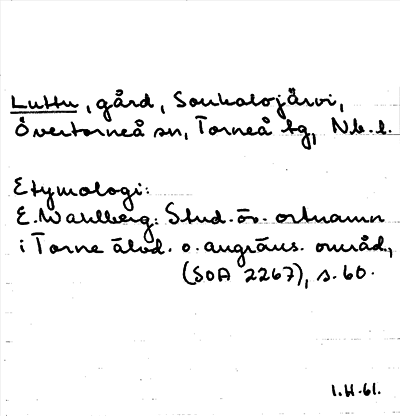 Luttu, gård, Soukolojärvi,
Övertorneå sn, Torneå tg, Nb.l.
Etymologi:
E. Wahlberg: Stud. öv. ortnamn
i Torne älvd. o. angräns. områd.,
(SOA 2267), s. 60.
1.H.61.